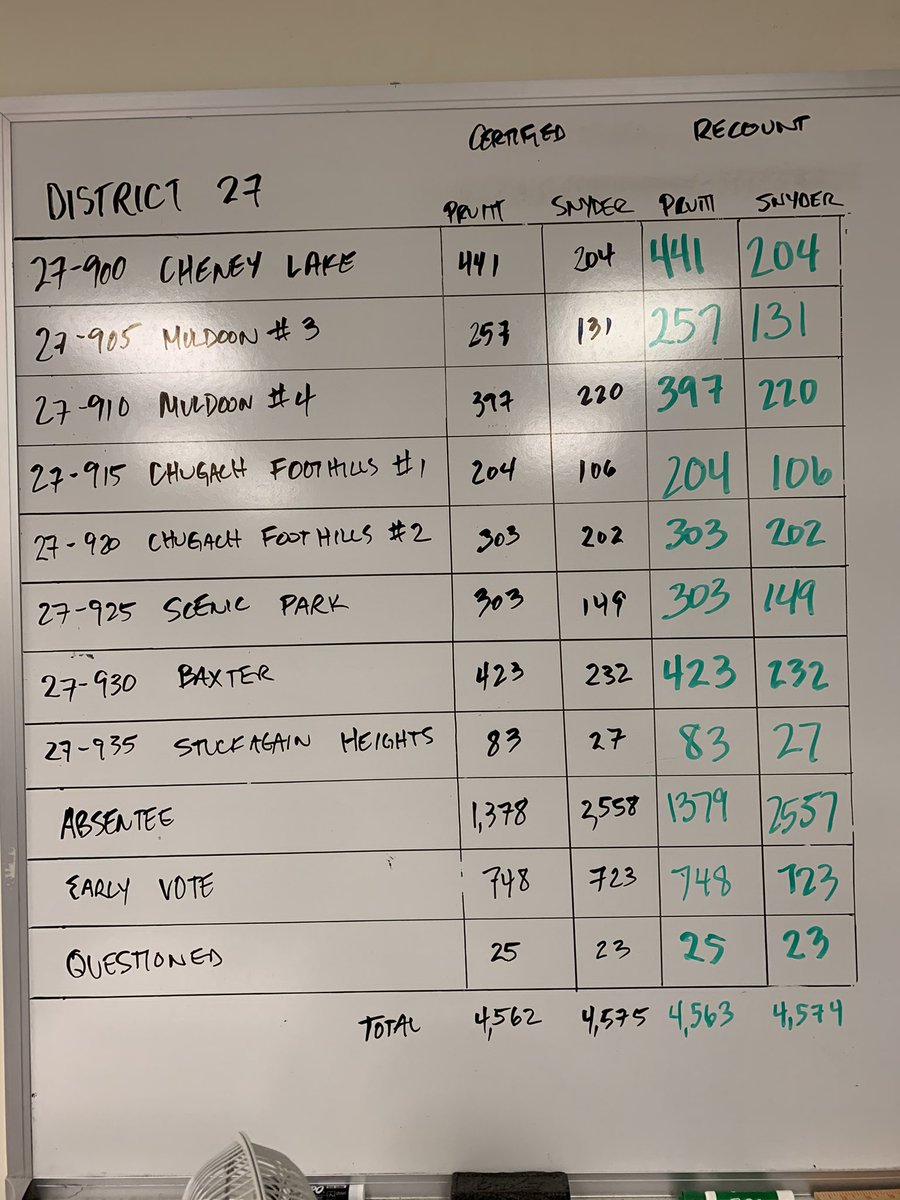 CERTIFIED RECOUNT
DISTRICT 27
PRUITT SNYDER PRUITT SNYDER
27-900 CHENEY LAKE 441 204 441 204
27-905 MULDOON #3 257 131 257 131
27-910 MULDOON #4 397 220 397 220
27-915 CHUGACH FOOTHILLS #1 204 106 204 106
27-920 CHUGACH FOOTHILLS #2 303 202 303 202
27-925 SCENIC PARK 303 149 303 149
27-930 BAXTER 423 232 423 232
27-935 STUCKAGAIN HEIGHTS 83 27 83 27
ABSENTEE 1,378 2,558 1379 2557
EARLY VOTE 748 723 748 723
QUESTIONED 25 23 25 23
TOTAL 4,562 4,575 4,563 4,574